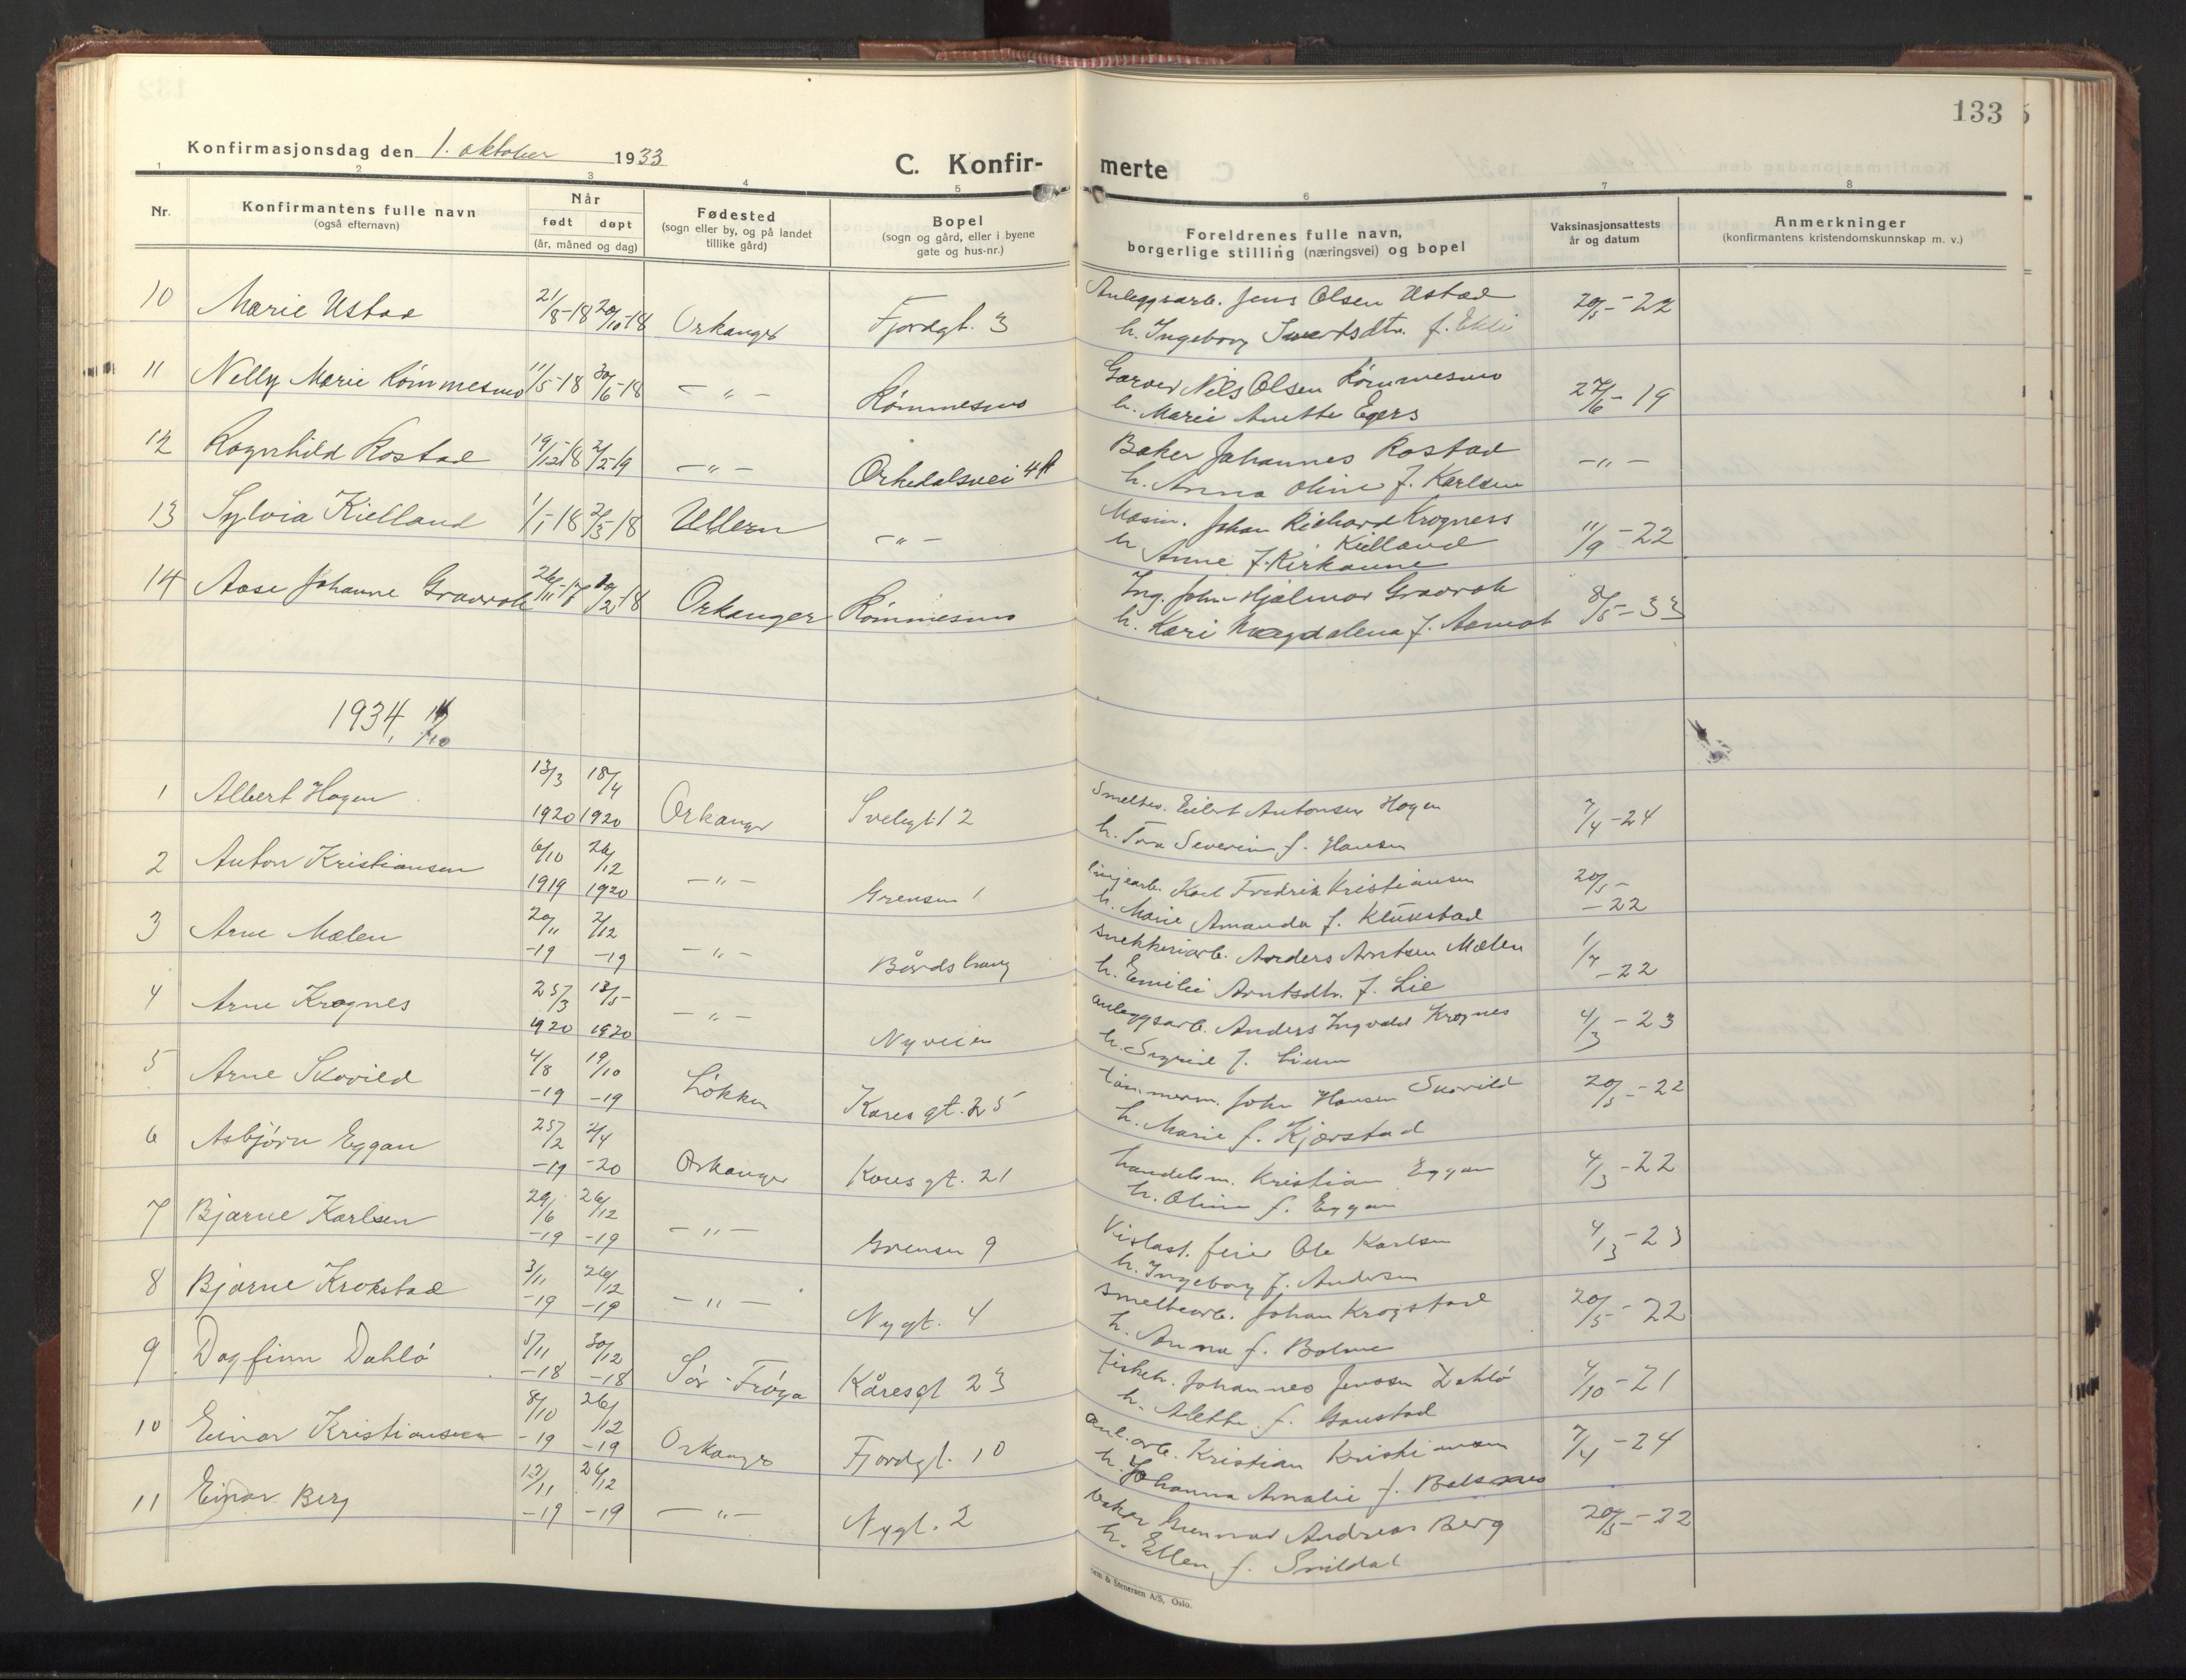 133
Konfirmasjonsdag den 1. oktober 1933
C. Konfirmerte
1 2 3 4 5 6 7 8
Nr.
Konfirmantens fulle navn
(også efternavn)
Når
født døpt
(år, måned og dag)
Fødested
(sogn eller by, og på landet
tillike gård)
Bopel
(sogn og gård, eller i byene
gate og hus-nr.)
Foreldrenes fulle navn,
borgerlige stilling (næringsvei) og bopel
Vaksinasjonsattests
år og datum
Anmerkninger
(konfirmantens kristendomskunnskap m. v.)
10 Marie Ustad 21/8-18 20/10-18 Orkanger Fjordgt. 3 Anleggsarb. Jens Olsen Ustad 20/5-22
h. Ingeborg f. Ekli
11 Nelly Marie Rømmesmo 11/5-18 30/6-18 - " - Rømmesmo Garver Nils Olsen Rømmesmo 27/6-19
h. Marie Anette Egers
12 Ragnhild Rostad 19/12-18 2/2-19 - " - Orkedalsvei 4 Baker Johannes Rostad - " -
h. Anna Oline f. Karlsen
13 Sylvia Kielland 1/1-18 2/3-18 Ullern - " - Johan Richard Krogness 11/9-22
Kielland
h. Anne f. Kirkaune
14 Aase Johanne Gravrok 26/11-17 10/2-18 Orkanger Rømmesmo Ing. John Hjalmar Gravrok 8/5-33
h. Kari Magdalena f. Aamot
1934, /10
1 Albert Hagen 13/3 1920 18/4 1920 Orkanger Svelgt 12 Smeltev. Eilert Antonsen Hagen 7/4-24
h. Tora Severine f. Hansen
2 Anton Kristiansen 6/10 1919 26/12 1920 - " - Grensen 1 linjearb. Karl Fredrik Kristiansen 20/5-22
h. Marie Amanda f. Klukstad
3 Arne Mælen 20/11-19 2/12-19 - " - Bårdshaug snekkeriarb. Anders Arntsen Mælen 1/7-22
h. Emilie Arntsdtr. f. Lie
4 Arne Krognes 25/3 1920 13/5 1920 - " - Nyveien anleggsarb. Anders Ingvald Krognes 4/3-23
h. Sigrid f. Lium
5 Arne Skorild 4/8-19 19/10-19 Løkken Kåresgt. 25 tømmerm. John Hansen Skorild 20/5-22
h. Marie f. Kjørstad
6 Asbjørn Eggan 25/2-19 2/4-20 Orkanger Kåresgt. 21 handelsm. Kristian Eggan 4/3-22
h. Oline f. Eggan
7 Bjarne Karlsen 29/6-19 26/12-19 - " - Grensen 9 feier Ole Karlsen 4/3-23
h. Ingeborg f. Andersen
8 Bjarne Krokstad 3/11-19 26/12-19 - " - Nygt. 4 smeltearb. Johan Krogstad 20/5-22
h. Anna f. Bolme
9 Dagfinn Dahlø 5/11-18 30/12-18 Sør-Frøya Kåresgt 23 fiskeh. Johannes Jenssen Dahlø 4/10-21
h. Alette f. Gaustad
10 Einar Kristiansen 8/10-19 26/12-19 Orkanger Fjordgt. 10 anl.arb. Kristian Kristiansen 7/4-24
h. Johanna Amalie f. Balsnes
11 Einar Berg 12/11-19 26/12-19 - " - Nygt. 2 baker Gunnar Andreas Berg 20/5-22
h. Ellen f. Snildal
Sem & Stenersen A/S, Oslo.